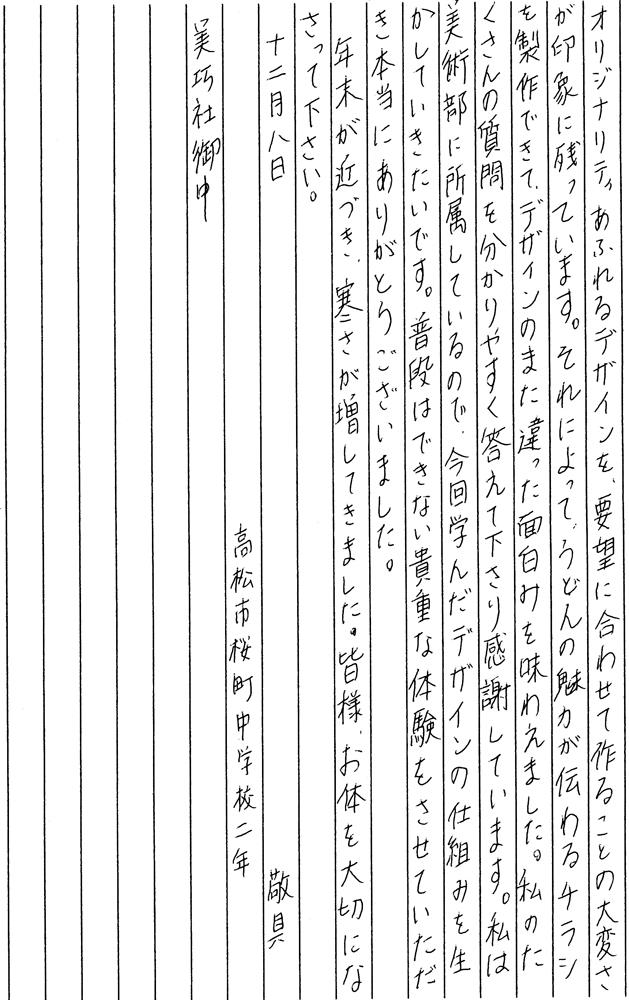 オリジナリティあふれるデザインを、要望に合わせて作ることの大変さ
が印象に残っています。それによって、うどんの魅力が伝わるチラシ
を製作できて、デザインのまた違った面白みを味わえました。私のた
くさんの質問を分かりやすく答えて下さり感謝しています。私は
美術部に所属しているので、今回学んだデザインの仕組みを生
かしていきたいです。普段はできない貴重な体験をさせていただ
き本当にありがとうございました。
年末が近づき、寒さが増してきました。皆様、お体を大切にな
さって下さい。
敬具
十二月八日
高松市桜町中学校二年
美巧社御中